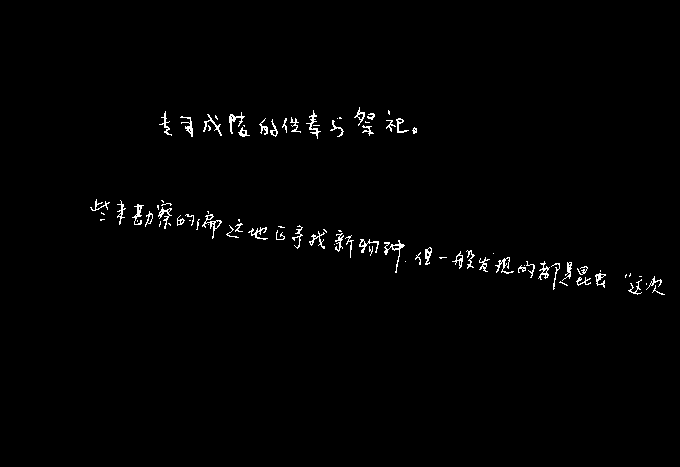 专司成陵的供奉与祭祀。
些未勘察的偏远地区寻找新物种.但一般发现的都是昆虫“这次